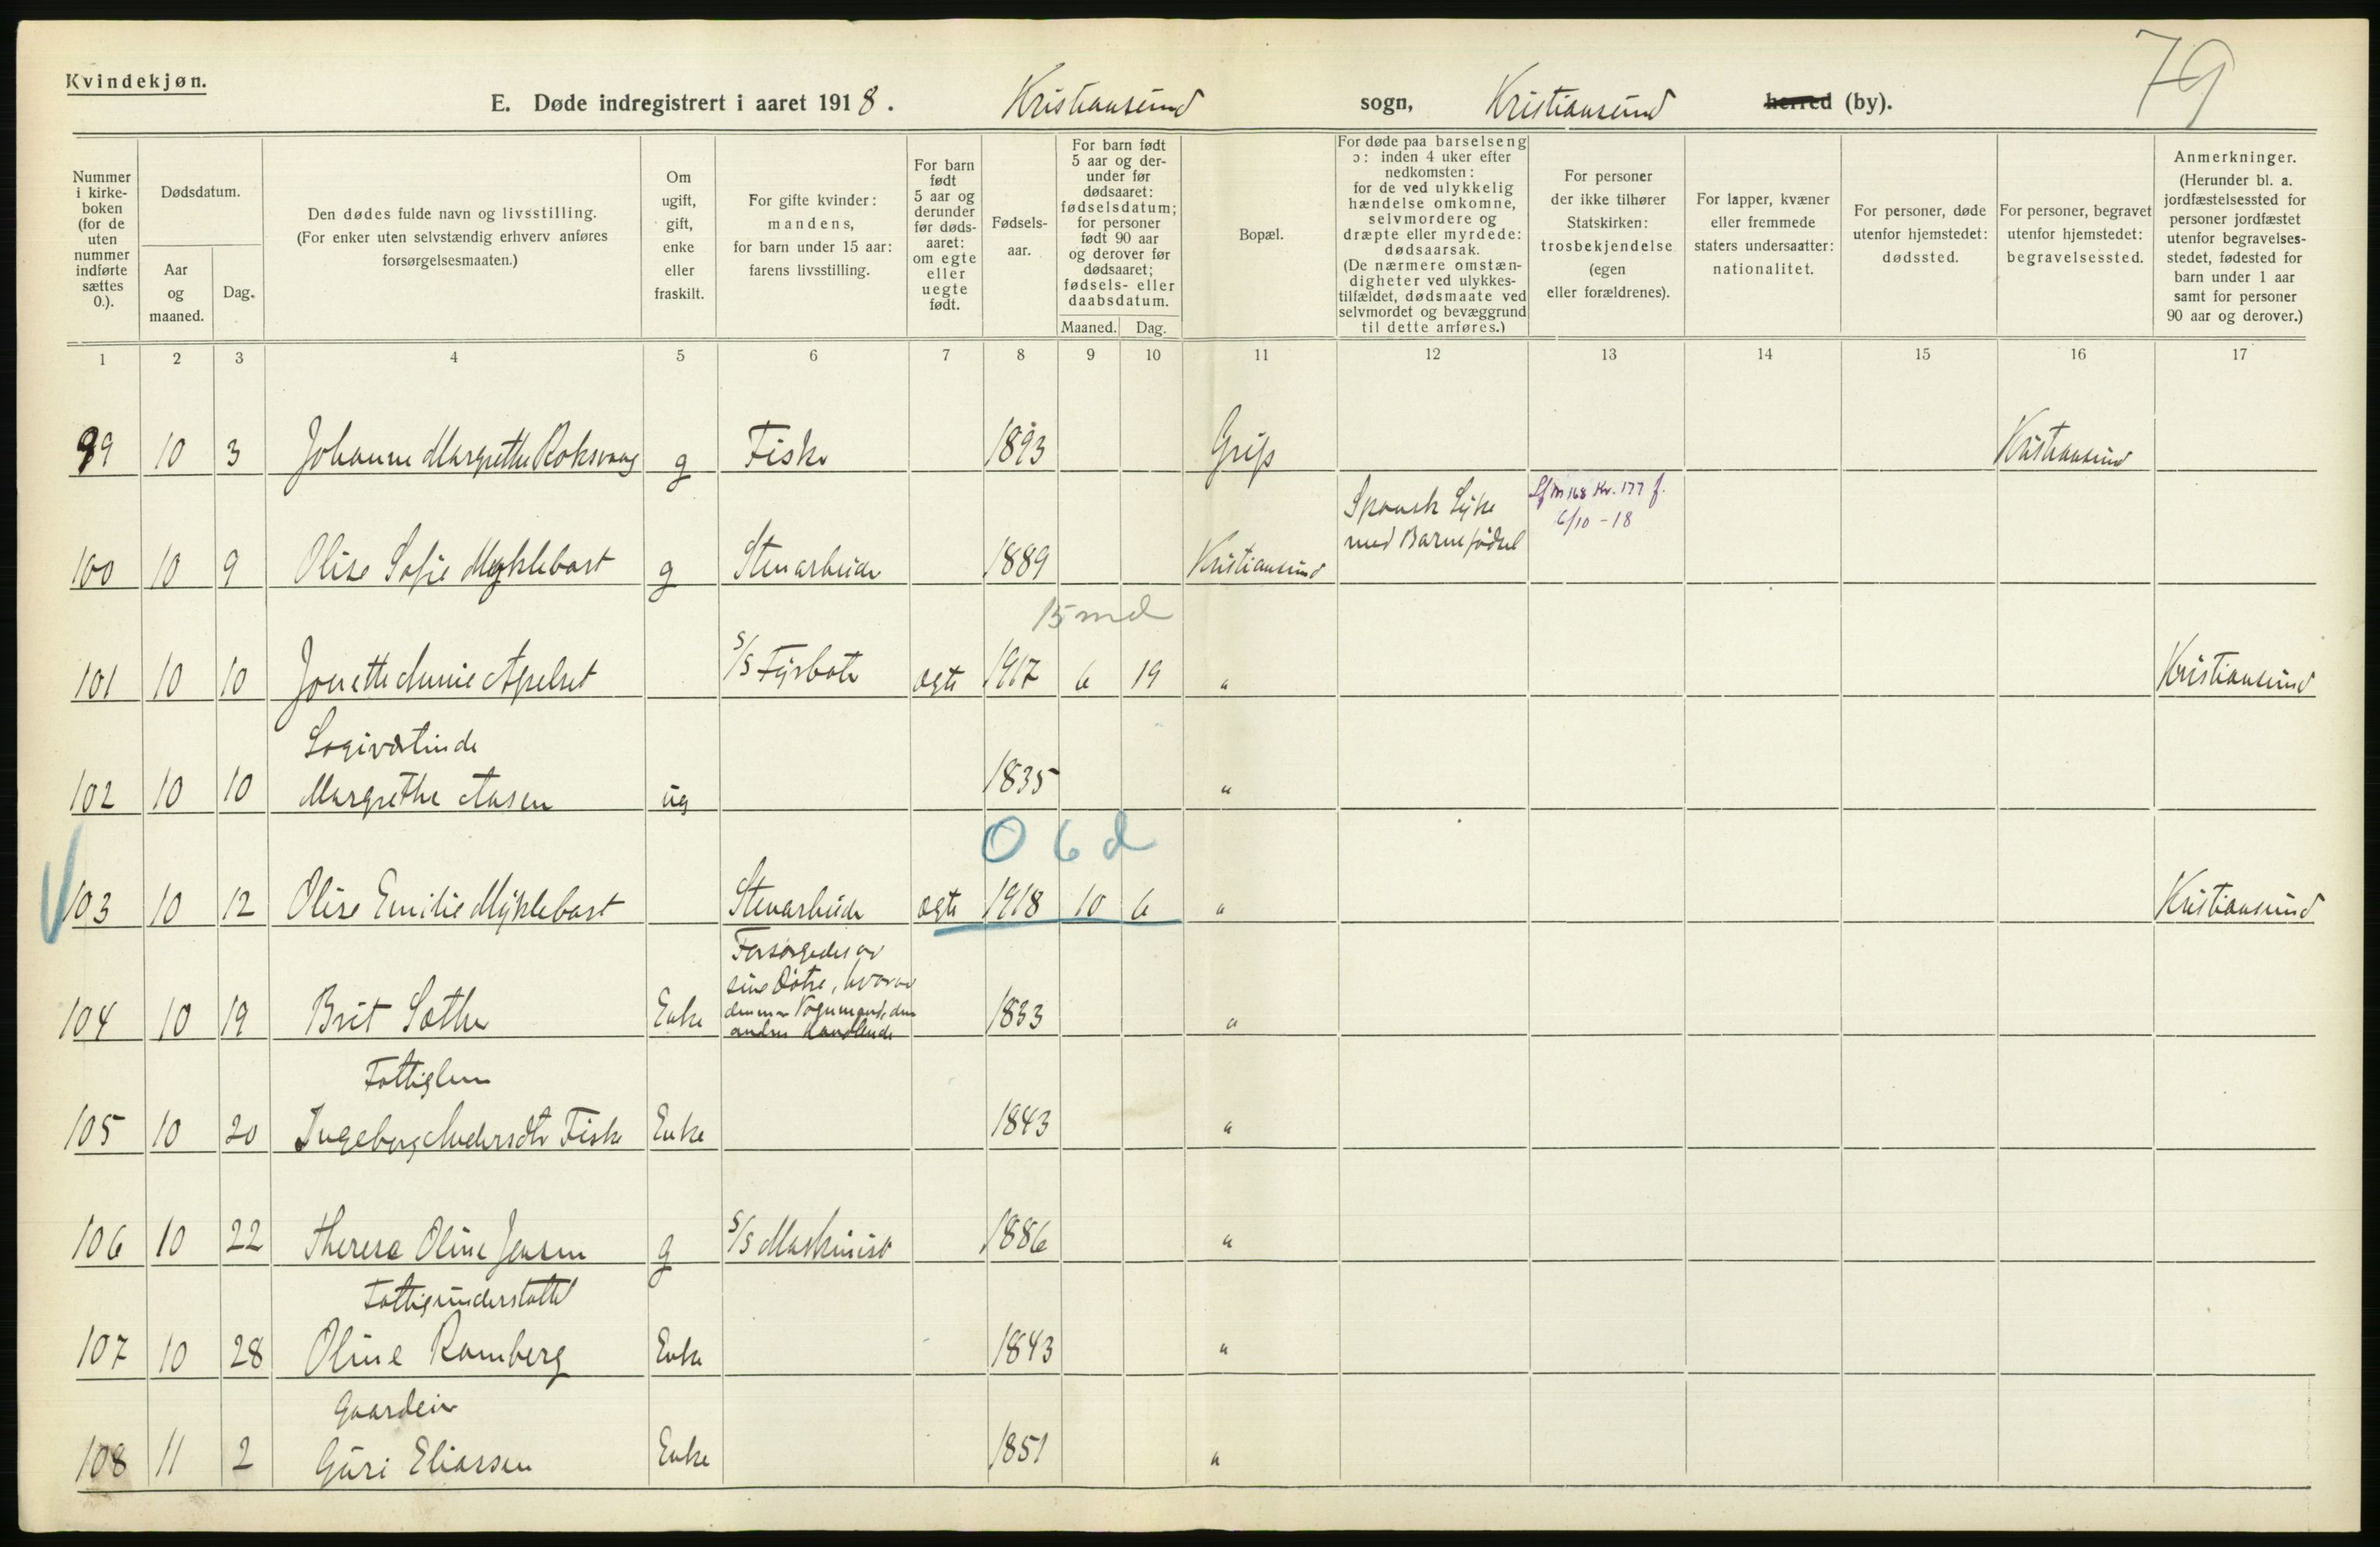 Kvindekjøn.
79
E. Døde indregistrert i aaret 1918. Kristiansund sogn, Kristiansund herred (by).
Nummer i kirkeboken (for de uten nummer indførte sættes 0.).
Dødsdatum.
Aar og maaned.
Dag.
Den dødes fulde navn og livsstilling.
(For enker uten selvstændig erhverv anføres
forsørgelsesmaaten.)
Om ugift, gift, enke eller fraskilt.
For gifte kvinder: mandens, for barn under 15 aar: farens livsstilling.
For barn født 5 aar og derunder før dødsaaret: om egte eller uegte født.
Fødselsaar.
For barn født 5 aar og derunder før dødsaaret: fødselsdatum; for personer født 90 aar og derover før dødsaaret; fødsels- eller daabsdatum.
Maaned. Dag.
Bopæl.
For døde paa barselseng ɔ: inden 4 uker efter nedkomsten: for de ved ulykkelig hændelse omkomne, selvmordere og dræpte eller myrdede: dødsaarsak. (De nærmere omstændigheter ved ulykkestilfældet, dødsmaate ved selvmordet og bevæggrund til dette anføres.)
For personer der ikke tilhører Statskirken: trosbekjendelse (egen eller forældrenes).
For lapper, kvæner eller fremmede staters undersaatter: nationalitet.
For personer, døde utenfor hjemstedet: dødssted.
For personer, begravet utenfor hjemstedet: begravelsessted.
Anmerkninger. (Herunder bl. a. jordfæstelsessted for personer jordfæstet utenfor begravelsesstedet, fødested for barn under 1 aar samt for personer 90 aar og derover.)
1 2 3 4 5 6 7 8 9 10 11 12 13 14 15 16 17
99 10 3 Johanne Margrethe Roksvaag g Fisker 1893 Grip Kristiansund
Spansk Syke
med Barnefødsel
6/10 - 18
100 10 9 Olise Sofie Myklebost g Stenarbeider 1889 Kristiansund
15 md
101 10 10 Jonette Annie Apelset S/S Fyrbøter ægte 1917 6 19 " Kristiansund
Logivertinde
102 10 10 Margrethe Aasen ug 1835 "
0 6 d
103 10 12 Olise Emilie Myklebost Stenarbeider ægte 1918 10 6 " Kristiansund
Forsørgedes av
sine Døtre, hvorav
den ene Vognmand, den
andre Handlende
104 10 19 Brit Sæther Enke 1833 "
Fattiglem
105 10 20 Ingeborg Andersdtr Fiske Enke 1843 "
106 10 22 Therese Oline Jensen g S/S Maskinist 1886 "
Fattigunderstøttet
107 10 28 Oline Ramberg Enke 1843 "
Gaardeier
108 11 2 Guri Eliassen Enke 1851 "